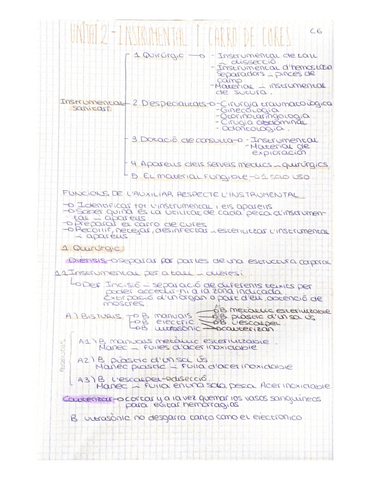 UNITAT 2 - INSTRUMENTAL I CARRO DE CURES
C6
1. Quirúrgic
- Instrumental de tall
dissecció
- Instrumental d'hemostàsia
separadors - pinces de
camp
- Material - instrumental
de sutura.
Instrumental
sanitari
2. D'especialitats
- Cirurgia traumatològica
- Ginecologia
- Otorrinolaringologia
- Cirugia abdominal
- Odontologia.
3. Dotació de consulta
- Instrumental
- Material de
exploración
4. Aparells dels serveis mèdics - quirúrgics
5. El material Fungible
1 sol uso
FUNCIONS DE L'AUXILIAR RESPECTE L'INSTRUMENTAL
Identificar tot l'instrumental i els aparells
Saber quina és la utilitat de cada peça d'instrumen-
tal - aparells
Preparar el carro de cures
Recollir, netejar, desinfectar - esterilitzar l'instrumental
- aparells
1. Quirúrgic
Dièresis separar por partes de una estructura corporal
1.1 Instrumental per a tall - dièresi
Def Incisió - separació de diferents teixits per
poder accedir-hi a la zona indicada
Extirpació d'un òrgan o part d'ell, obtenció de
mostres
A.) BISTURÍS
B manuals
B elèctric
B ultrasònic
B metàl·lic esterilitzable
B plàstic d'un sol ús
B l'escarpel
cauteritzan
A1) B manuals metàl·lic esterilitzable
Mànec - Fulles d'acer inoxidable
A2) B plàstic d'un sol ús
Mànec plàstic - Fulla d'acer inoxidable
A3) B L'escarpel - disecció
Mànec - Fulla en una sola peça. Acer inoxidable
Cauteritzar cortar y a la vez quemar los vasos sanguíneos
para evitar hemorragias
B ultrasònic no desgarra tanto como el electrónico